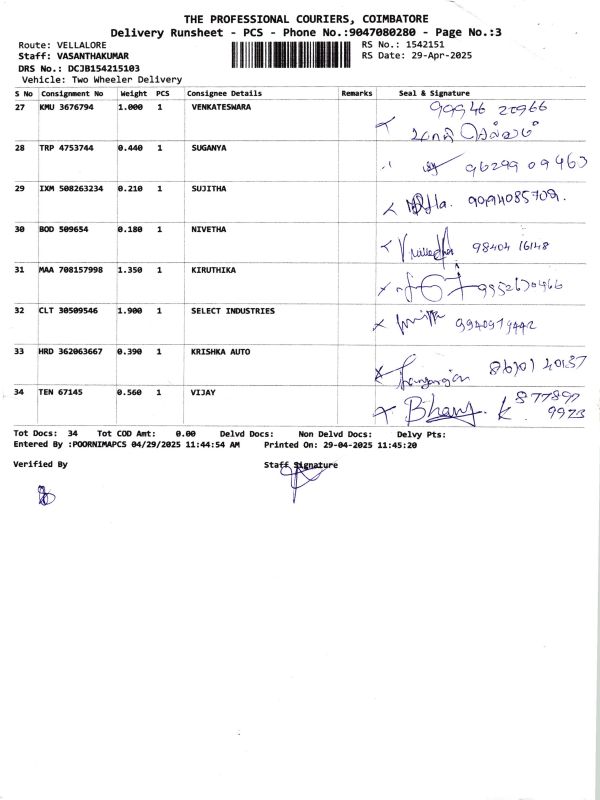 THE PROFESSIONAL COURIERS, COIMBATORE
Delivery Runsheet - PCS - Phone No.:9047080280 - Page No.:3
Route: VELLALORE RS No.: 1542151
Staff: VASANTHAKUMAR RS Date: 29-Apr-2025
DRS No.: DCJB154215103
Vehicle: Two Wheeler Delivery
S No Consignment No Weight PCS Consignee Details Remarks Seal & Signature
27 KMU 3676794 1.000 1 VENKATESWARA
28 TRP 4753744 0.440 1 SUGANYA 96299 09463
29 IXM 508263234 0.210 1 SUJITHA
30 BOD 509654 0.180 1 NIVETHA 98404 16148
31 MAA 708157998 1.350 1 KIRUTHIKA
32 CLT 30509546 1.900 1 SELECT INDUSTRIES 9940979442
33 HRD 362063667 0.390 1 KRISHKA AUTO
34 TEN 67145 0.560 1 VIJAY K
Tot Docs: 34 Tot COD Amt: 0.00 Delvd Docs: Non Delvd Docs: Delvy Pts:
Entered By :POORNIMAPCS 04/29/2025 11:44:54 AM Printed On: 29-04-2025 11:45:20
Verified By Staff Signature